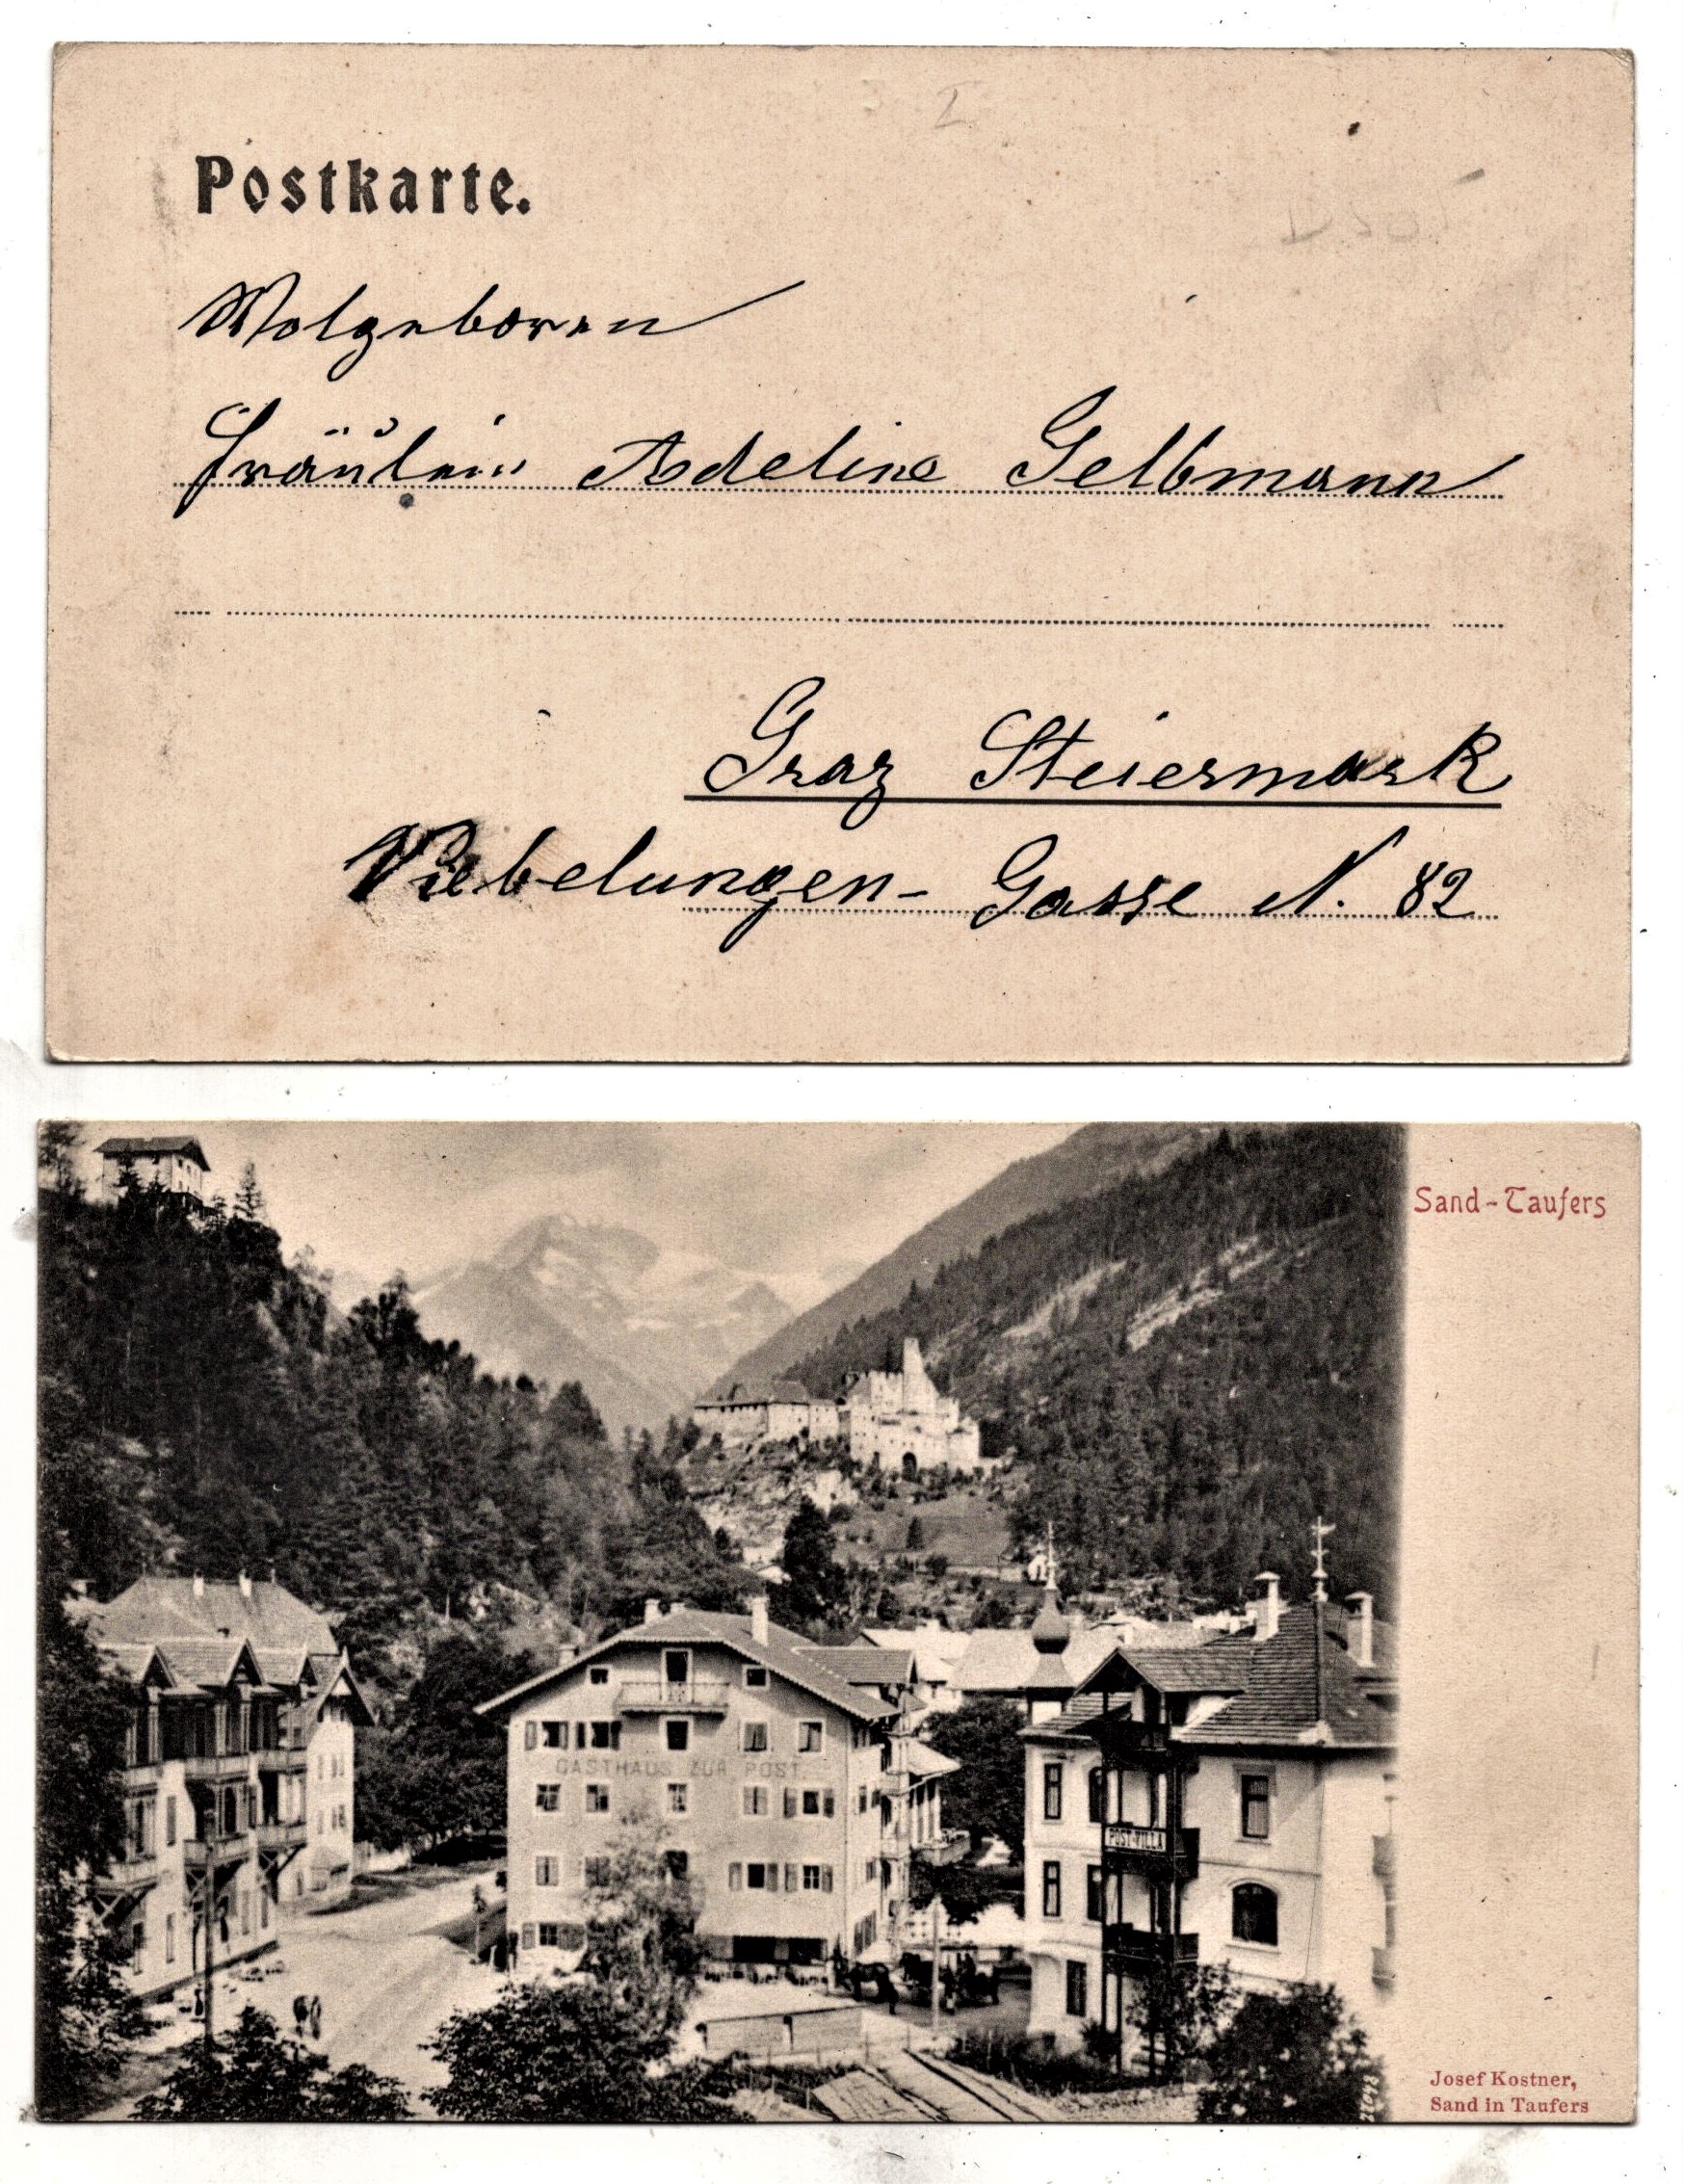 Postkarte.
Wolgeboren
Fräulein Adeline Gelbmann
Graz Steiermark
Niebelungen-Gasse N. 82
Sand-Taufers
GASTHAUS ZUR POST.
POST-VILLA
Josef Kostner,
Sand in Taufers